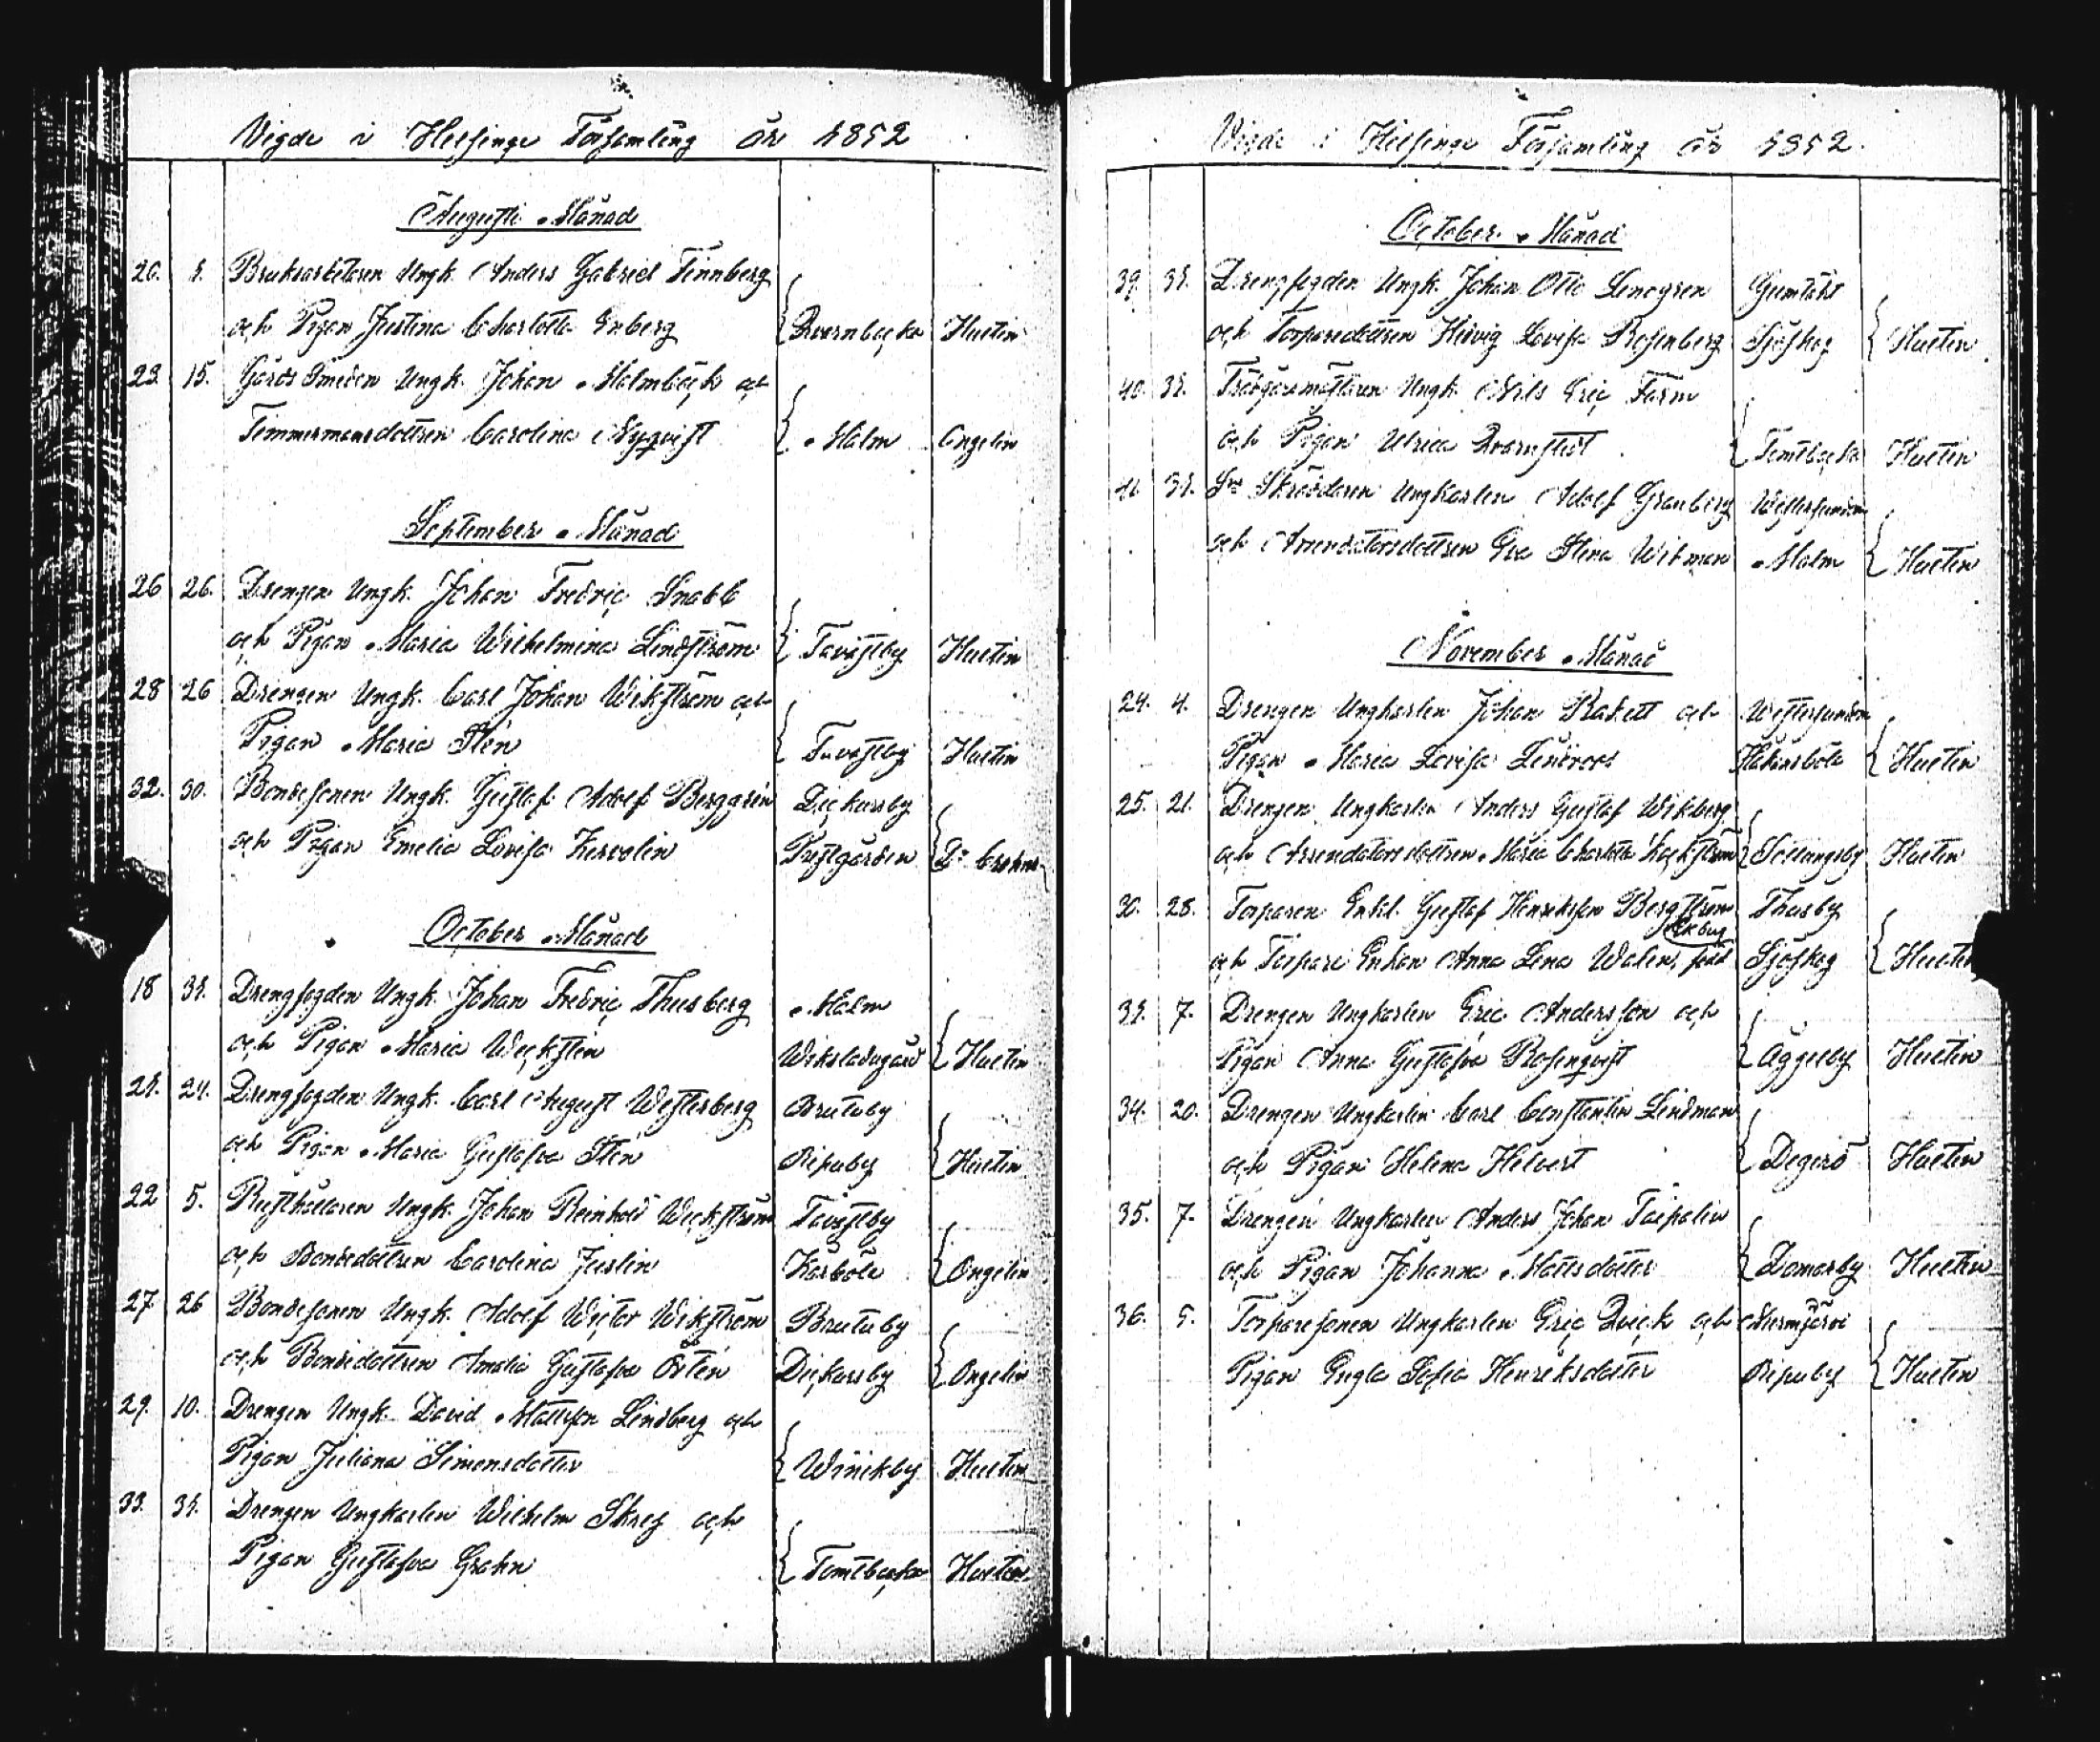 Vigde i Helsinge Församling år 1852
Augusti Månad
20. 1. Bruksarbetaren Ungk. Anders Gabriel Finnberg
och Pigan Justina Charlotta Enberg Qvarnbacka Huetin
23. 15. Gårds Smeden Ungk. Johan Malmbäck och
Timmermansdottren Carolina Nyqvist Malm Ongelin
September Månad
26 26. Drengen Ungk. Johan Fredric Snabb
och Pigan Maria Wilhelmina Lindström Tavastby Huetin
28 26 Drengen Ungk. Carl Johan Wikström och
Pigan Maria Stén Tavastby Huetin
32. 30. Bondesonen Ungk. Gustaf Adolf Berggrén Dickursby
och Pigan Emelia Lovisa Prestgården
October Månad
18 31. Drengfogden Ungk. Johan Fredric Thusberg Malm
och Pigan Maria Weckstin Wiksladugård Huetin
21. 24. Drengfogden Ungk. Carl August Westerberg Brutuby
och Pigan Maria Gustafva Stén Ripuby Huetin
22 5. Rusthållaren Ungk. Johan Reinhold Weckström Tavastby
och Bondedottren Carolina Juslin Kårböle Ongelin
27 26 Bondesonen Ungk. Adolf Wictor Wikström Brutuby
och Bondedottren Amalia Gustafva Östén Dickursby Ongelin
29. 10. Drengen Ungk. David Mattsson Lindberg och
Pigan Juliana Simonsdotter Winikby Huetin
33. 31. Drengen Ungkarlen Wilhelm Skog och
Pigan Gustafva Grahn Tomtbacka Huetin
Vigde i Helsinge Församling år 1852.
October Månad
39. 31. Drengfogden Ungk. Johan Otto Lindgren Gumtäkt
och Torparedottren Hedvig Lovisa Rosenberg Sjöskog Huetin
40. 31. Trädgårdmästaren Ungk. Nils Eric Farm
och Pigan Ulrica Qvarnstedt Tomtbacka Huetin
41. 31. Skräddaren Ungkarlen Adolf Granberg Westersundom
och Arrendatorsdottren Eva Stina Witman Malm Huetin
November Månad
24. 4. Drengen Ungkarlen Johan Rakett och Westersundom
Pigan Maria Lovisa Lindroos Håkansböle Huetin
25. 21. Drengen Ungkarlen Anders Gustaf Wikberg
och Arrendatorsdottren Maria Charlotta Kockström Sottungsby Huetin
30. 28. Torparen Enkl. Gustaf Henriksson Bergström Thusby
Ekberg
och Torpare Enkan Anna Lena Walen, född Sjöskog Huetin
31. 7. Drengen Ungkarlen Eric Andersson och
Pigan Anna Gustafva Rosenqvist Åggelby Huetin
34. 20. Drengen Ungkarlen Carl Constantin Lindman
och Pigan Helena Helvert Degerö Huetin
35. 7. Drengen Ungkarlen Anders Johan Taipalin
och Pigan Johanna Mattsdotter Domarby Huetin
36. 5. Torparesonen Ungkarlen Eric Qvick och Nurmijärvi
Pigan Engla Sofia Henriksdotter Ripuby Huetin